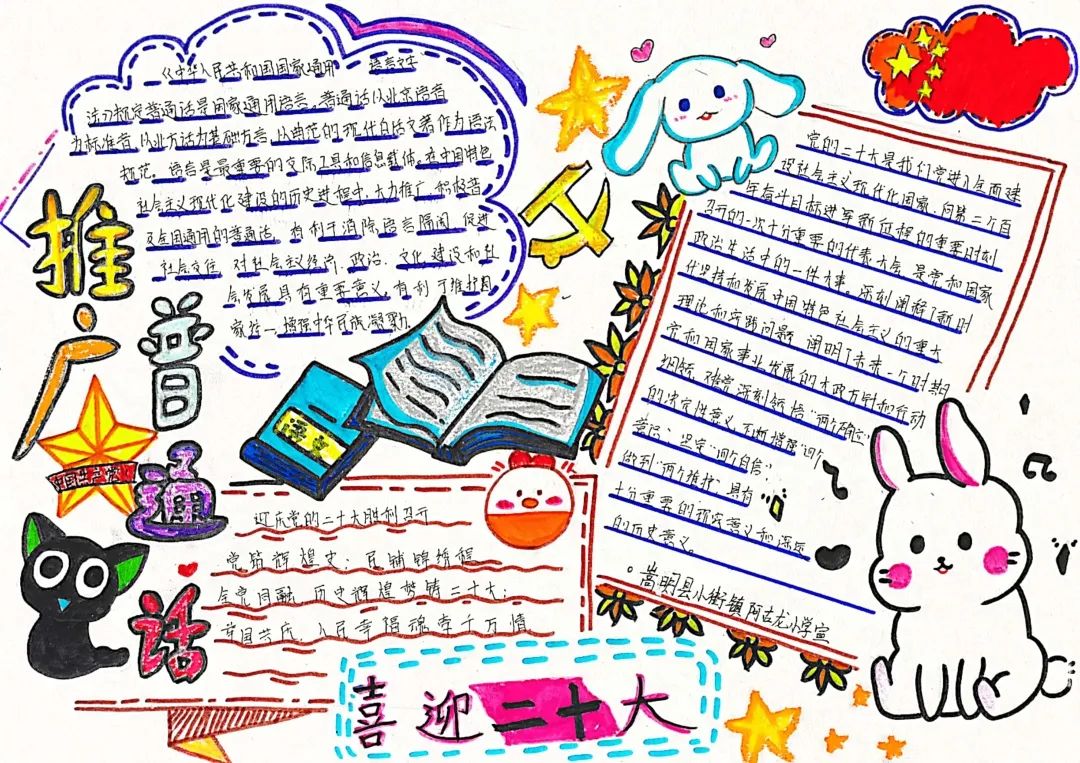 《中华人民共和国国家通用 语言文字
法》规定普通话是国家通用语言。普通话以北京语音
为标准音,以北方话为基础方言,以典范的现代白话文著作为语法
规范。语言是最重要的交际工具和信息载体。在中国特色
社会主义现代化建设的历史进程中,大力推广、积极普
及全国通用的普通话,有利于消除语言隔阂,促进
社会交往,对社会主义经济、政治、文化建设和社
会发展具有重要意义。有利于维护国
家统一,增强中华民族凝聚
推
广
普
通
话
语文
中国共产党
迎庆党的二十大胜利召开
党筑辉煌史;民铺锦绣程
全党同融,历史辉煌梦铸二十大;
普国共庆,人民幸福魂牵千万情
喜迎二十大
党的二十大是我们党进入全面建
设社会主义现代化国家、向第二个百
年奋斗目标进军新征程的重要时刻
召开的一次十分重要的代表大会,是党和国家
政治生活中的一件大事。深刻阐释了新时
代坚持和发展中国特色社会主义的重大
理论和实践问题,阐明了未来一个时期
党和国家事业发展的大政方针和行动
纲领,对党深刻领悟“两个确立”
的决定性意义,不断增强“四个
意识”、坚定“四个自信”、
做到“两个维护”具有
十分重要的现实意义和深远
的历史意义。
嵩明县小街镇阿古龙小学宣